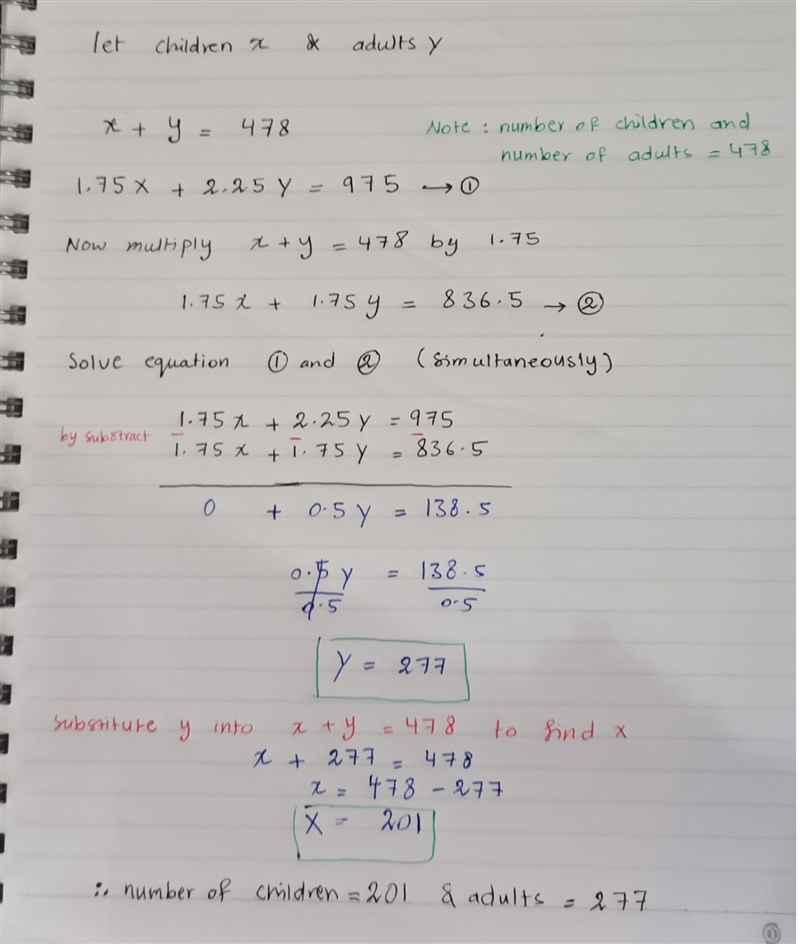 let children x & adults y
x + y = 478
Note : number of children and
number of adults = 478
1.75x + 2.25y = 975 → ①
Now multiply x + y = 478 by 1.75
1.75x + 1.75y = 836.5 → ②
Solve equation ① and ② (simultaneously)
by substract
1.75x + 2.25y = 975
1.75x + 1.75y = 836.5
0 + 0.5y = 138.5
0.5y = 138.5
0.5 0.5
y = 277
substiture y into x + y = 478 to find x
x + 277 = 478
x = 478 - 277
x = 201
∴ number of children = 201 & adults = 277
①